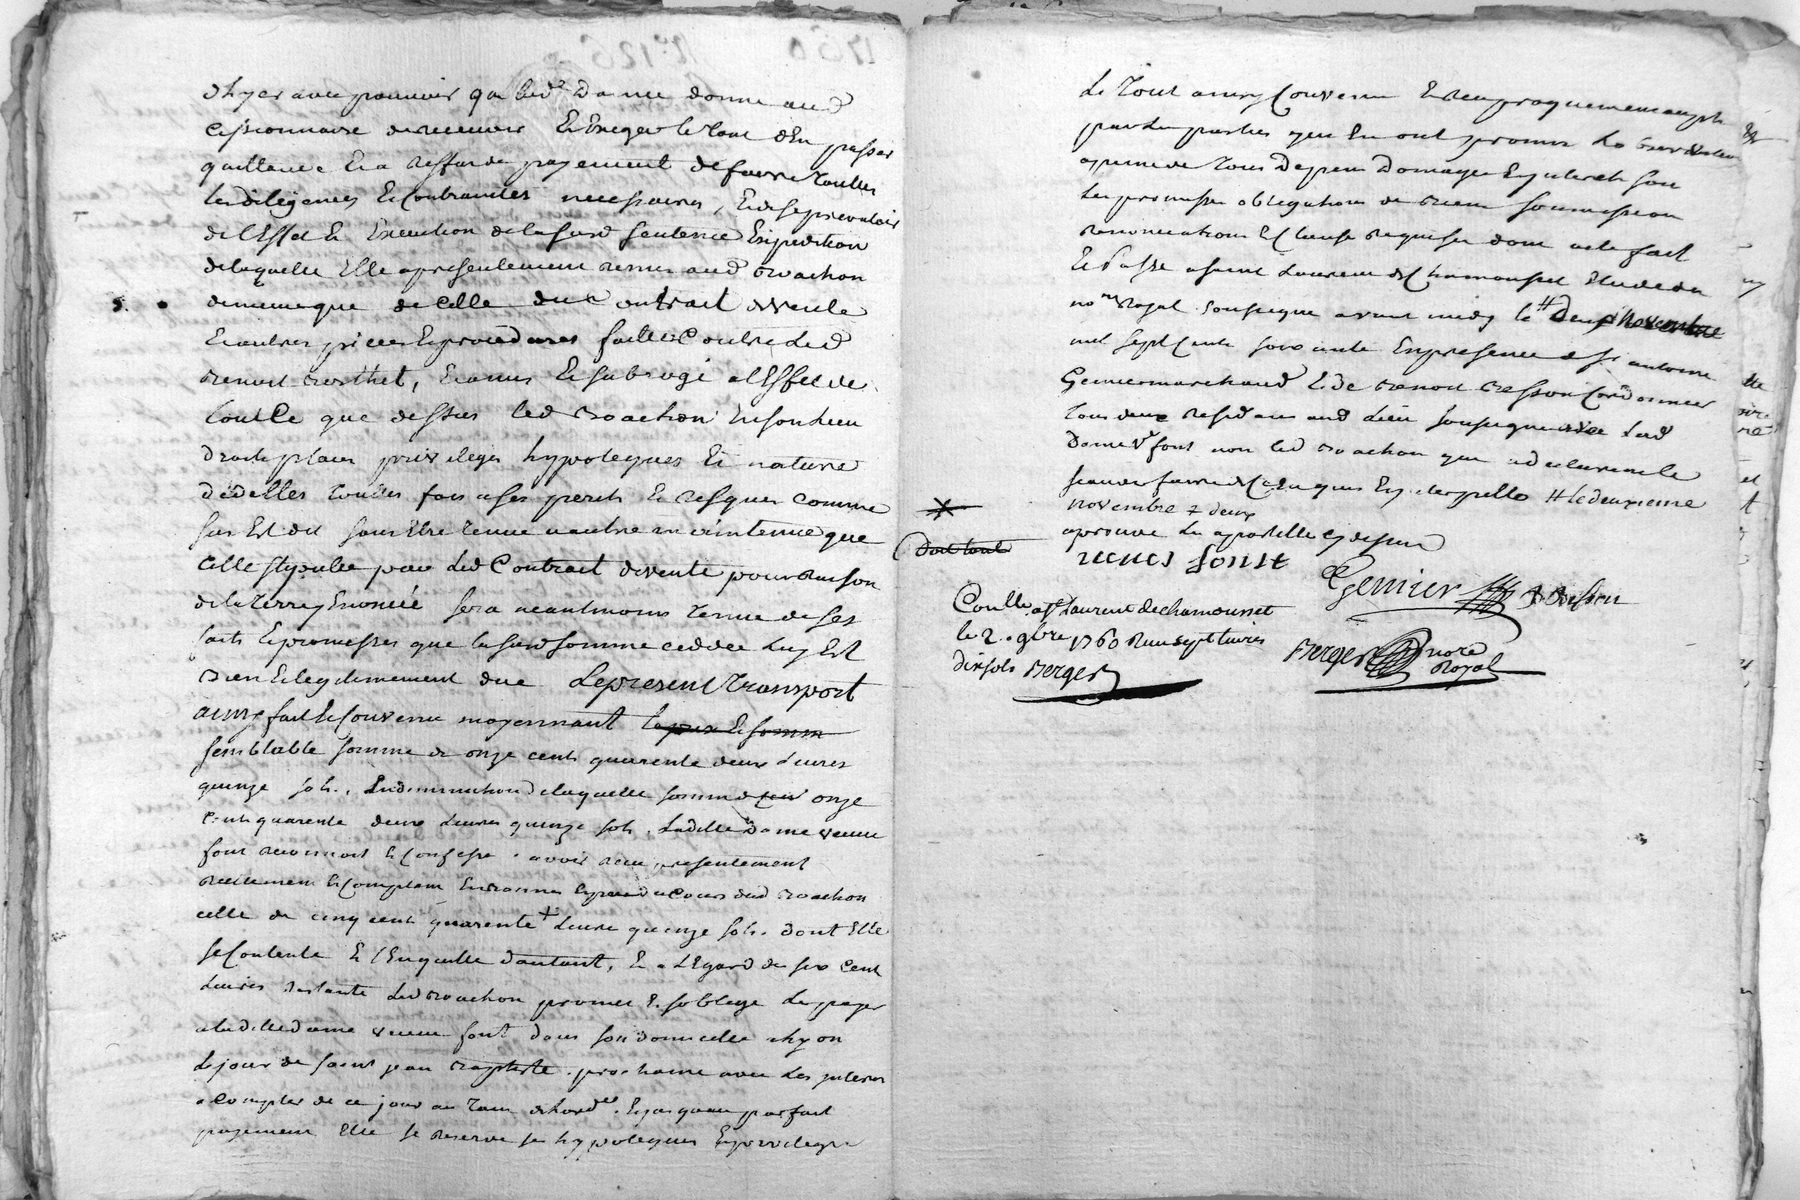 d'hyer avec pouvoir que lad.e Dame donne aud
cessionnaire de recevoir Et Exiger le tout d'En passer
quittance Et a deffaut de payement de faire toutes
les diligences Et contraintes necessaires, Et de se prevaloir
de l'Effet Et Execution de la susd sentence Expedition
de laquelle Elle a presentement remis aud Brachon
de meme que de Celle du Contrait de vente
Et autres pieces Et procedures faittes Contre led
Benoit Berthet, Et a mis Et subrogé a l'Effet de
tout Ce que dessus led Brachon En son lieu
droits place privileges hypoteques Et nature
d'Icelles toutes fois a ses perils Et risques comme
sus Est dit sans Etre tenue a autre maintenue que
Celle stipulée par led Contract de vente pour raison
de la terre y Enoncée sera neantmoins tenue de ses
faits Et promesses que la susd somme ceddée luy Est
bien Et legitimement due Le present transport
ainsy fait Et Convenu moyennant la prix Et somm
semblable somme de onze cents quarente deux livres
quinze sols. En diminution de laquelle somme de onze
Cents quarente deux livres quinze sols. Laditte Dame veuve
font reconnoit Et Confesse avoir reçu presentement
reellement Et Comptant En bonnes Especes de Cours dud Brachon
celle de cinq cent quarente + livres quinze sols. dont Elle
se Contente Et l'En quitte d'autant, Et a l'Egard de six Cent
livres restante led Brachon promet Et s'oblige de payer
a laditte dame veuve font dans son domicille a lyon
le jour de saint jean Baptiste prochaine avec les interets
a Compter de ce jour au taux de l'ord.ce Et jusqu'au parfait
payement Elle se reserve ses hypoteques Et privileges
Le tout ainsy Convenu Et reciproquement accepté
par les parties qui En ont promis l'observation
a peine de tous Depens Domages Interets sous
les promesses obligations de biens soumissions
renonciations Et Clause requises dont acte fait
Et Passé a saint Laurent de Chamousset Etude du
no.re Royal soussigné avant midy le # Deux Novembre
mil sept Cents soixante En presence de s.r antoine
Genier marchand Et de Benoit Besson Cordonnier
tous deux residans aud Lieu soussignés avec lad
Dame v.e font non led Brachon qui a declaré ne le
scavoir faire de Ce Enquis Et Interpellé # le deuxieme
novembre + deux
aprouvé les apostille cy dessus
veuve font
Genier B Besson
Berger nore
Royal
doit tout
Conllé a St Laurent de chamousset
le 2. 9bre 1760 Reçu sept livres
dix sols Berger